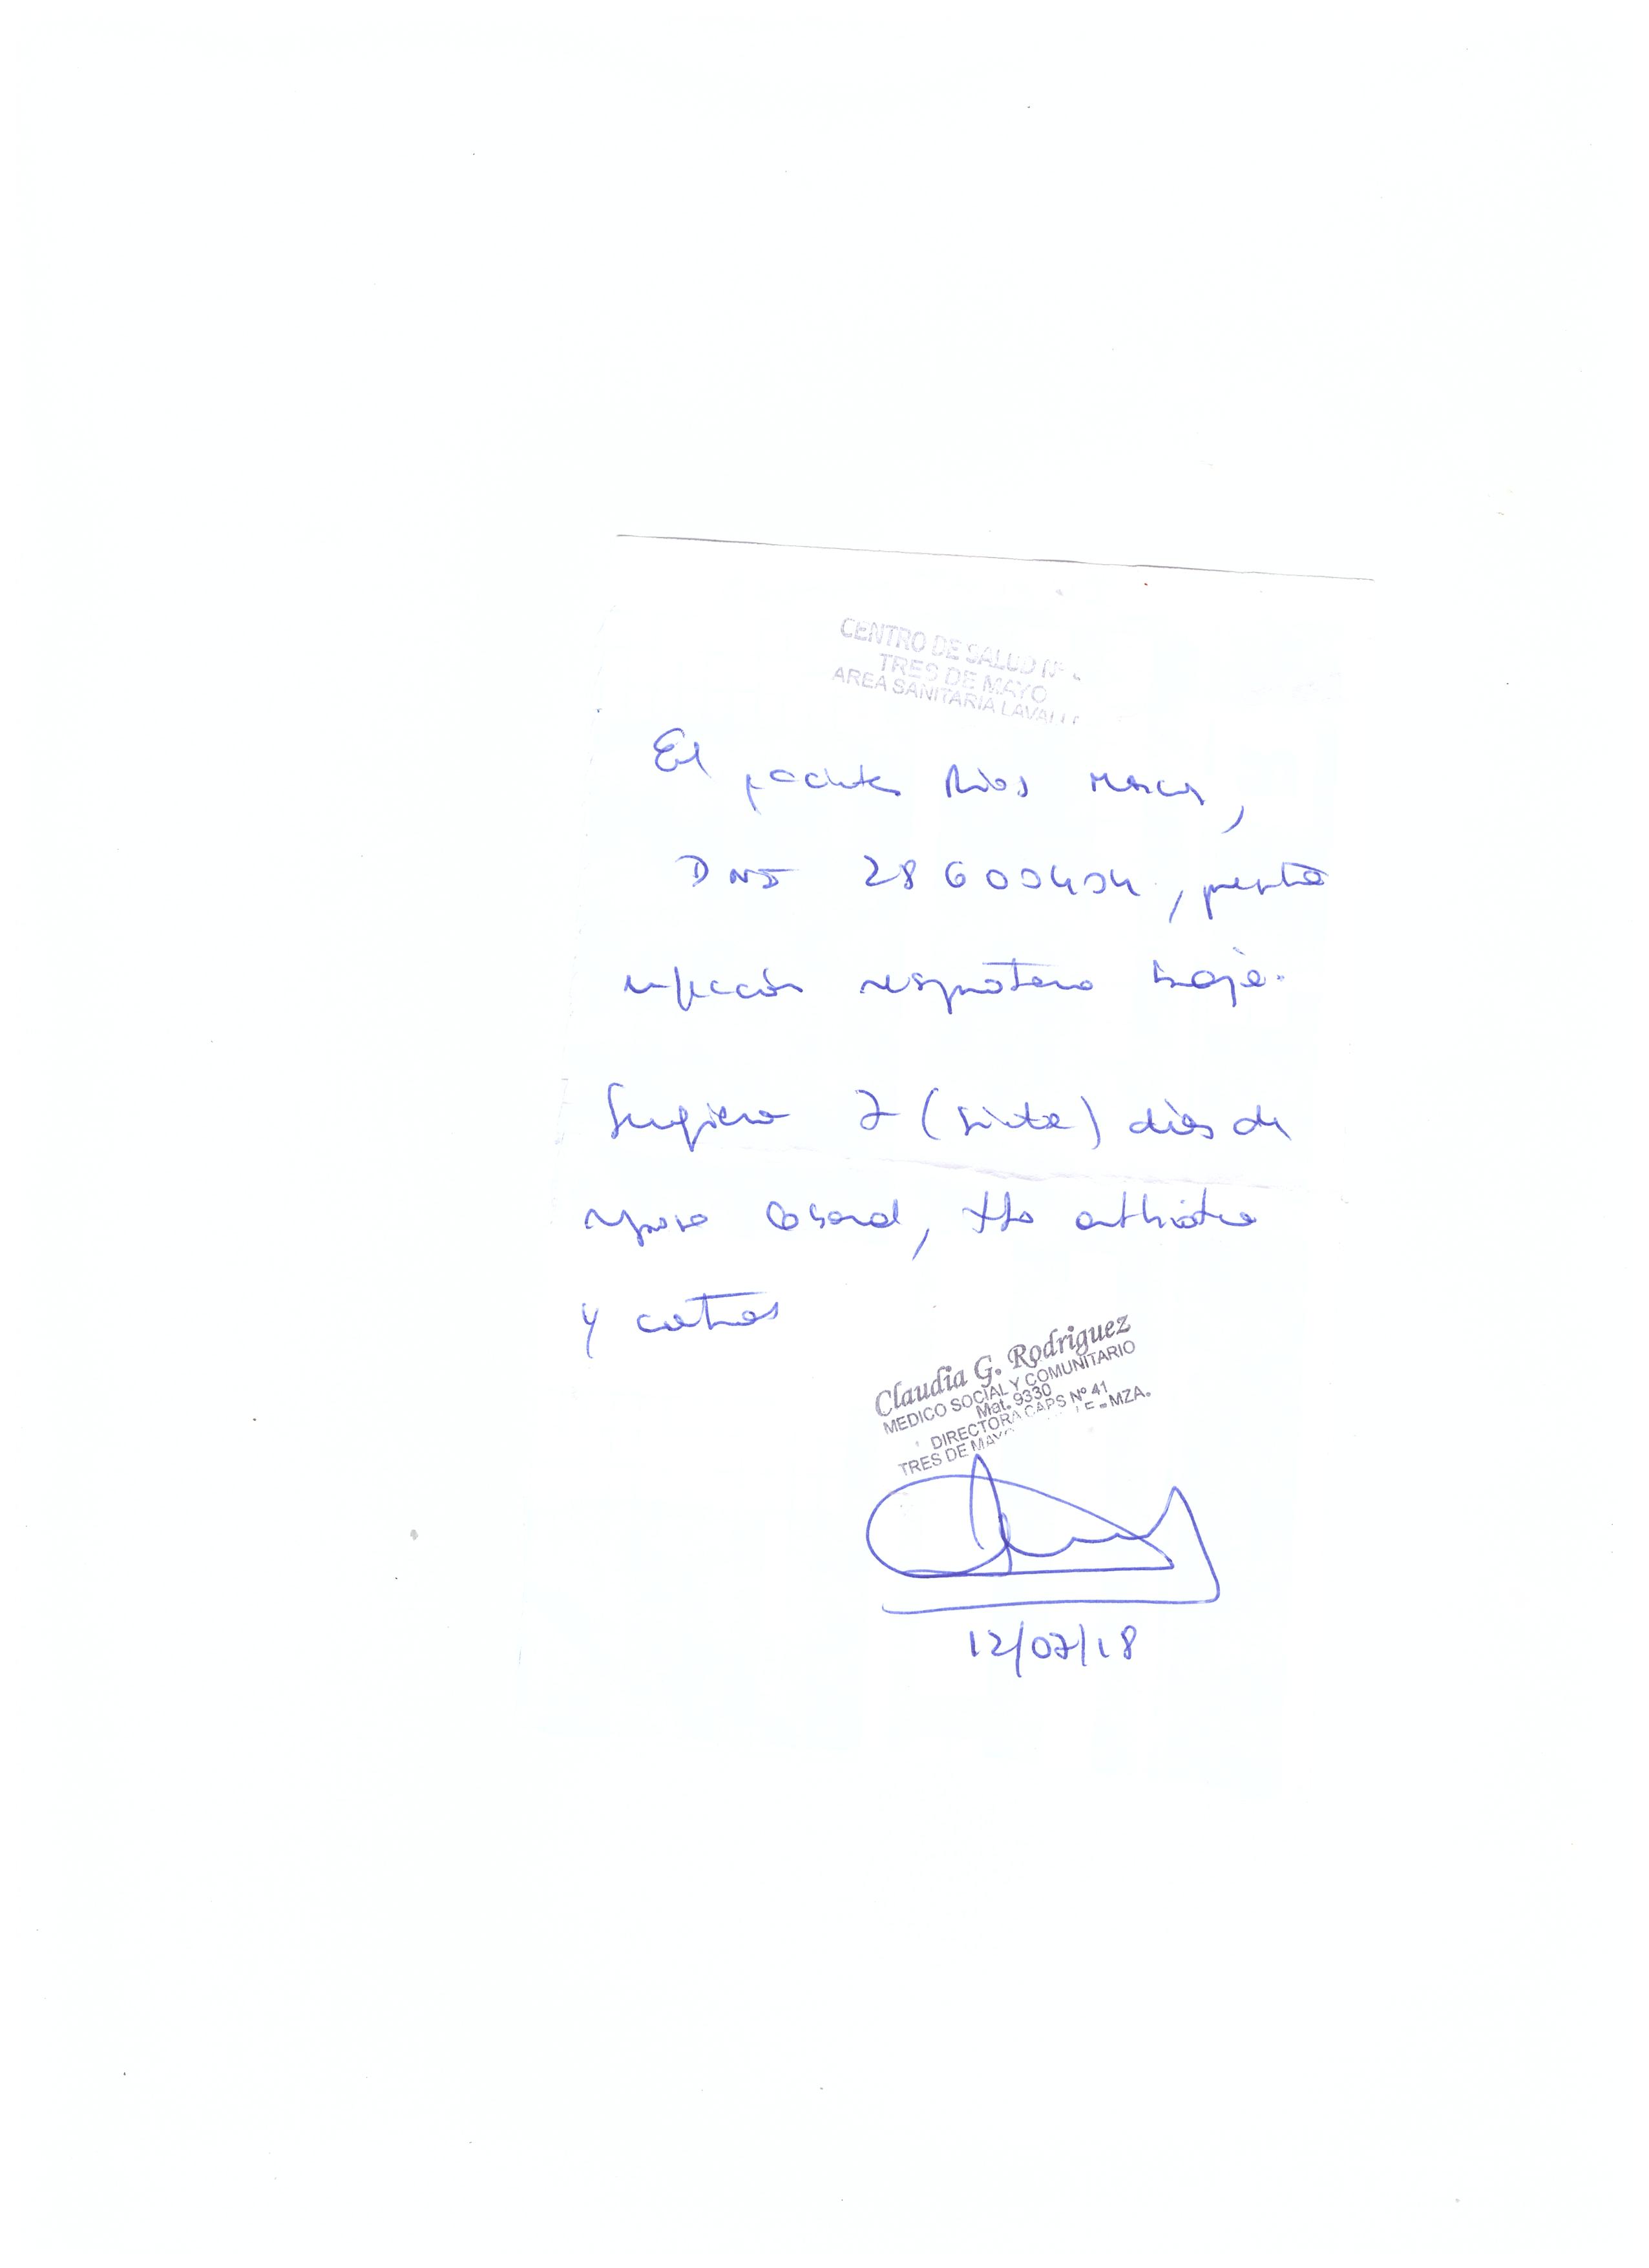 CENTRO DE SALUD Nº
TRES DE MAYO
AREA SANITARIA LAVALLE
El paciente Ríos
DNI 28600404, presenta
infección respiratoria baja.
Sugiero 7 (siete) días de
reposo laboral, tto antibiótico
y
Claudia G. Rodriguez
MEDICO SOCIAL Y COMUNITARIO
Mat. 9330
DIRECTORA CAPS Nº 41
TRES DE MAYO MZA.
12/07/18